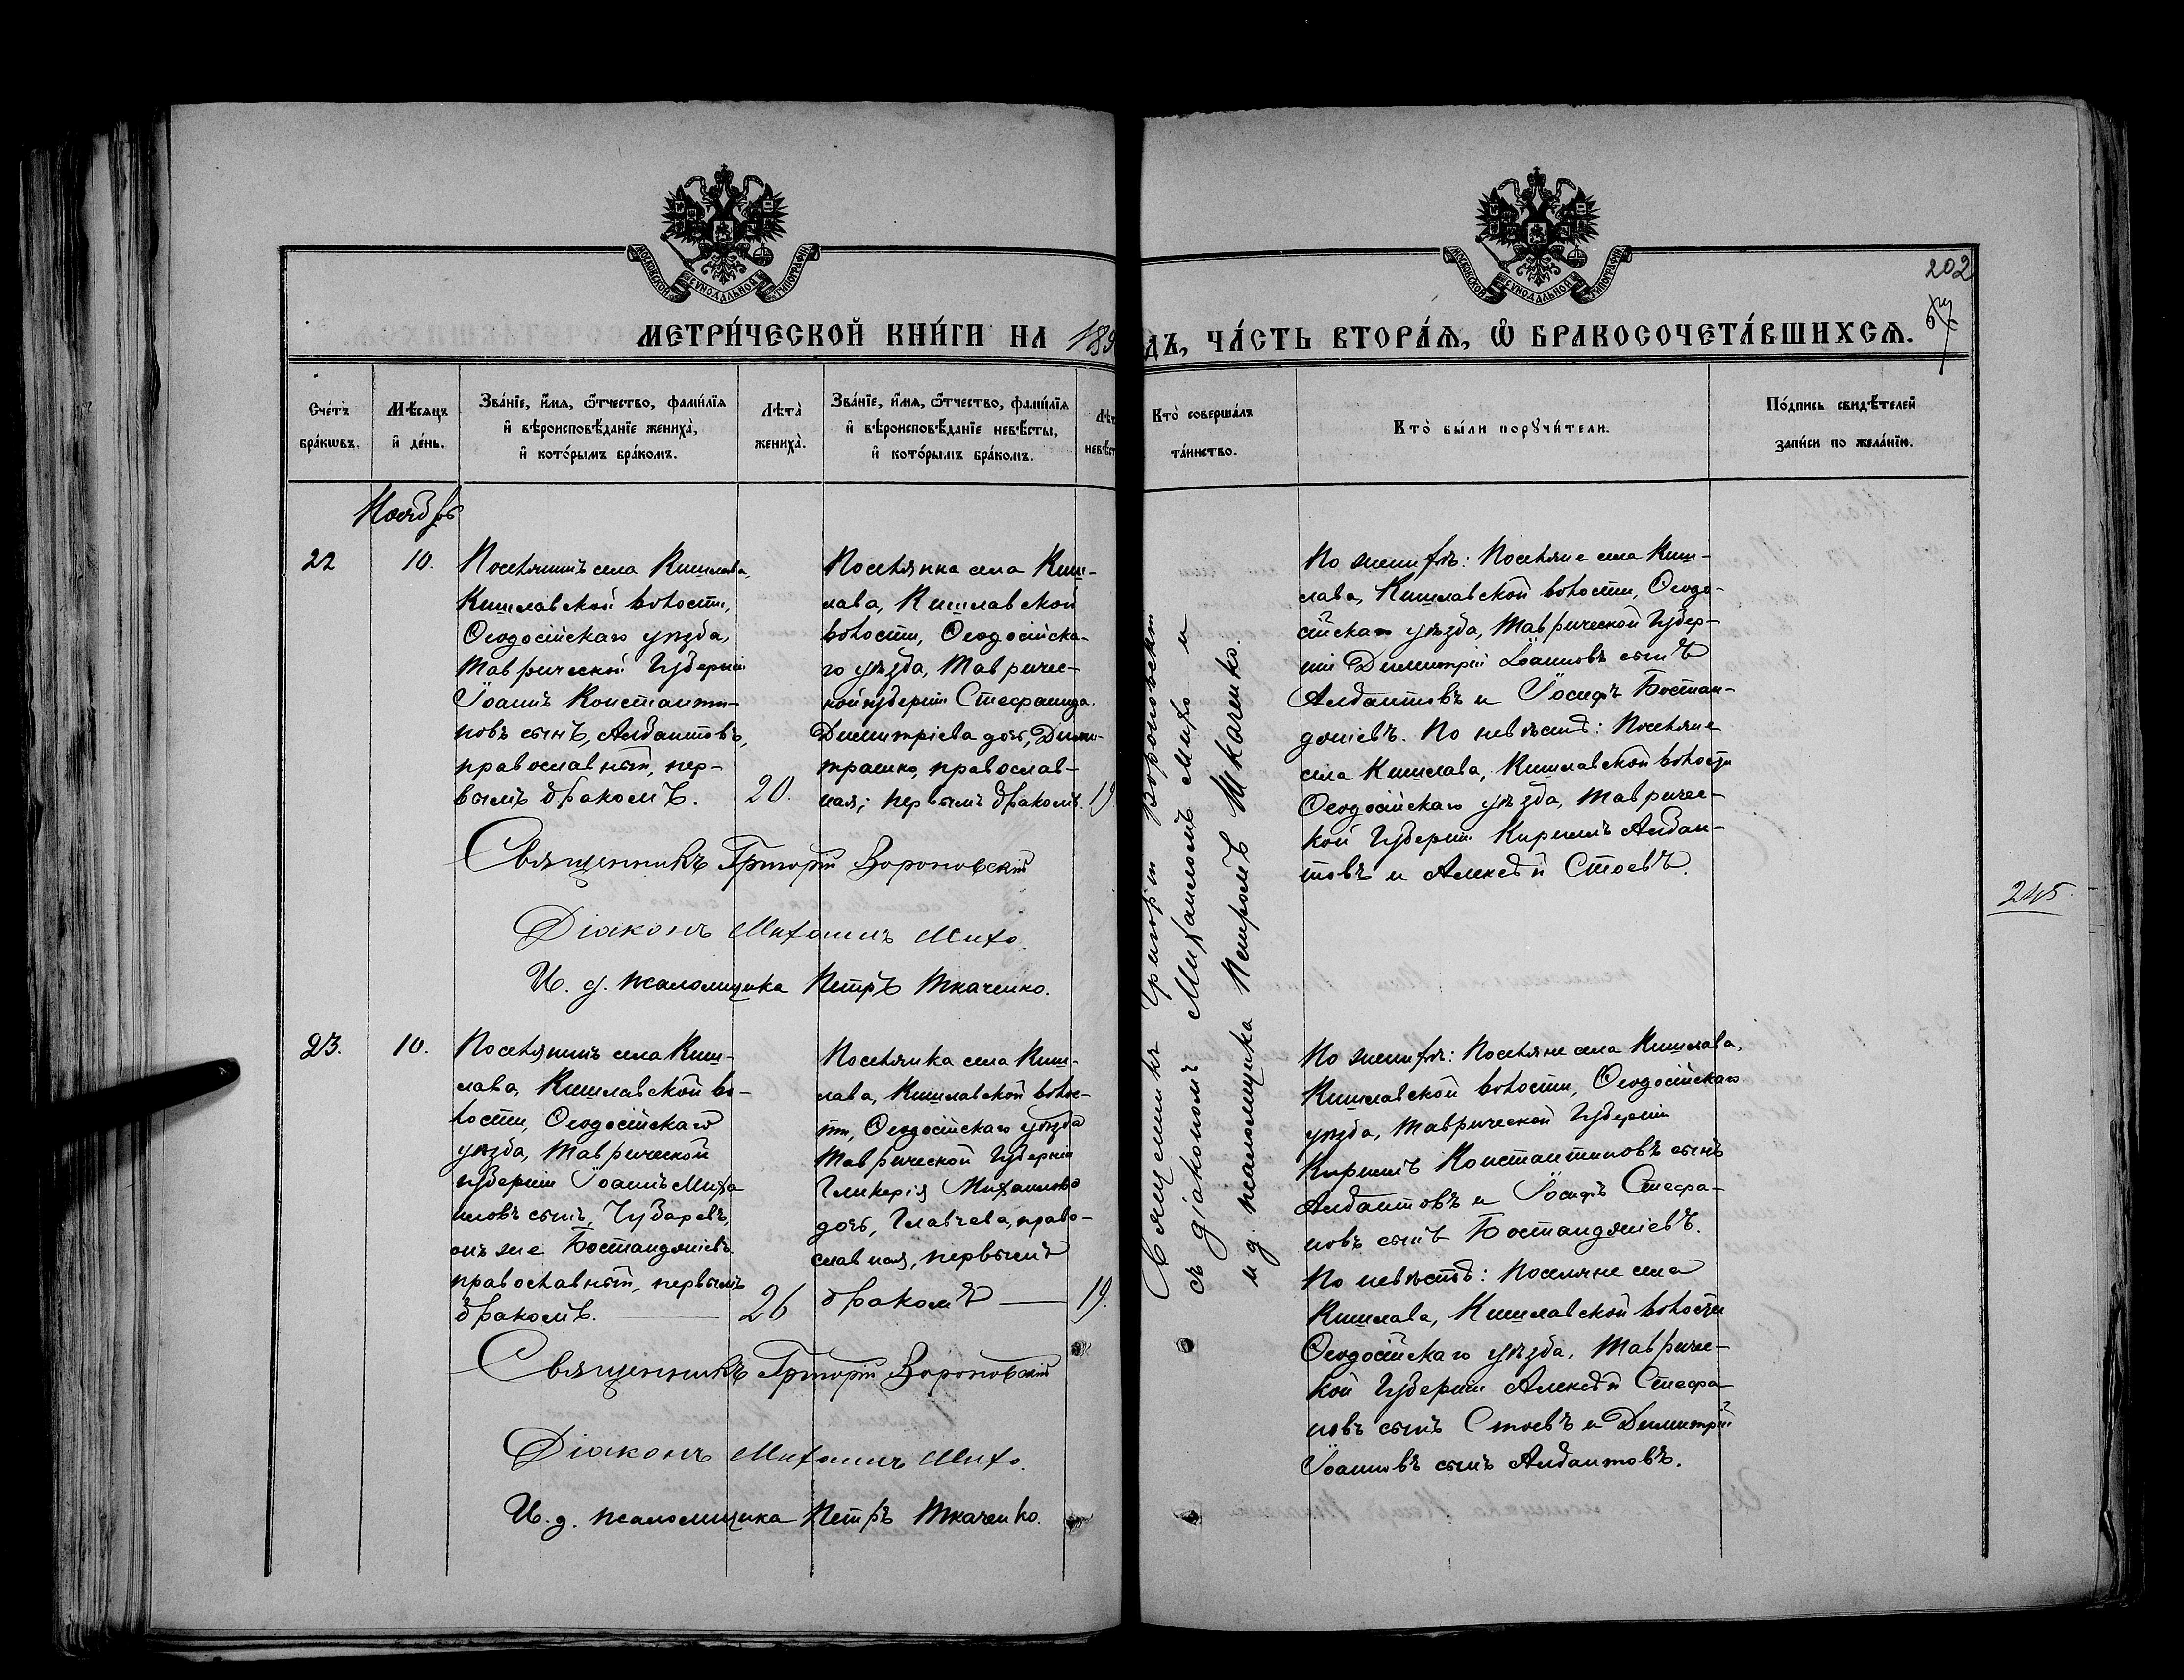 МОСКОВСКОЙ СѴНОДАЛЬНОЙ ТИПОГРАФІИ
МОСКОВСКОЙ СѴНОДАЛЬНОЙ ТИПОГРАФІИ
202
МЕТРИ́ЧЕСКОЙ КНИ́ГИ НА 189
ДЪ, ЧА́СТЬ ВТОРА́Ѧ, Ѽ БРАКОСОЧЕТА́ВШИХСѦ.
Сче́тъ бра́кѡвъ.
Мѣ́сяцъ и҆ де́нь.
Зва́нїе, и҆́мѧ, ѻ҆́тчество, фами́лїѧ и҆ вѣроисповѣ́данїе жениха̀, и҆ кото́рымъ бра́комъ.
Лѣта̀ жениха̀.
Зва́нїе, и҆́мѧ, ѻ҆́тчество, фами́лїѧ и҆ вѣроисповѣ́данїе невѣ́сты, и҆ кото́рымъ бра́комъ.
Кто̀ соверша́лъ та́инство.
Кто̀ бы́ли порꙋчи́тели.
По́дпись свидѣ́телей за́писи по жела́нїю.
Ноябрь
22
10.
Поселянинъ села Кишлава,
Кишлавской волости,
Ѳеодосійскаго уѣзда,
Таврической Губерніи
Іоаннъ Константи-
новъ сынъ, Алдантовъ,
православный, пер-
вымъ бракомъ.
20.
Поселянка села Киш-
лава, Кишлавской
волости, Ѳеодосійска-
го уѣзда, Тавричес-
кой губерніи Стефанида
Димитріева дочь, Дими-
трашко, православ-
ная; первымъ бракомъ.
19.
Священникъ Григорій Вороновскій
съ діакономъ Михаиломъ Михо и
и д. псаломщика Петромъ Ткаченко.
По женихѣ: Поселяне села Киш-
лава, Кишлавской волости, Ѳеодо-
сійскаго уѣзда, Таврической Губер-
ніи Димитрій Іоанновъ сынъ
Алдантовъ и Іосифъ Бостан-
джіевъ. По невѣстѣ: Поселяне
села Кишлава, Кишлавской волости
Ѳеодосійскаго уѣзда, Тавричес-
кой Губерніи Кириллъ Алдан-
товъ и Алексѣй Стоевъ.
Священникъ Григорій Вороновскій
Діаконъ Михаилъ Михо.
И. д. псаломщика Петръ Ткаченко.
245
23.
10.
Поселянинъ села Киш-
лава, Кишлавской во-
лости, Ѳеодосійскаго
уѣзда, Таврической
губерніи Іоаннъ Миха
иловъ сынъ, Чударевъ,
онъ же Бостанджіевъ
православный, первымъ
бракомъ.
26
Поселянка села Киш-
лава, Кишлавской волос-
ти, Ѳеодосійскаго уѣзда
Таврической Губерніи
Гликерія Михаилова
дочь, Главчева, право-
славная, первымъ
бракомъ
19.
По женихѣ: Поселяне села Кишлава,
Кишлавской волости, Ѳеодосійскаго
уѣзда, Таврической Губерніи
Кириллъ Константиновъ сынъ
Алдантовъ и Іосифъ Стефа-
новъ сынъ Бостанджіевъ.
По невѣстѣ: Поселяне села
Кишлава, Кишлавской волости
Ѳеодосійскаго уѣзда, Тавричес-
кой Губерніи Алексѣй Стефа-
новъ сынъ Стоевъ и Димитрій
Іоанновъ сынъ Алдантовъ.
Священникъ Григорій Вороновскій
Діаконъ Михаилъ Михо.
И. д. псаломщика Петръ Ткаченко.